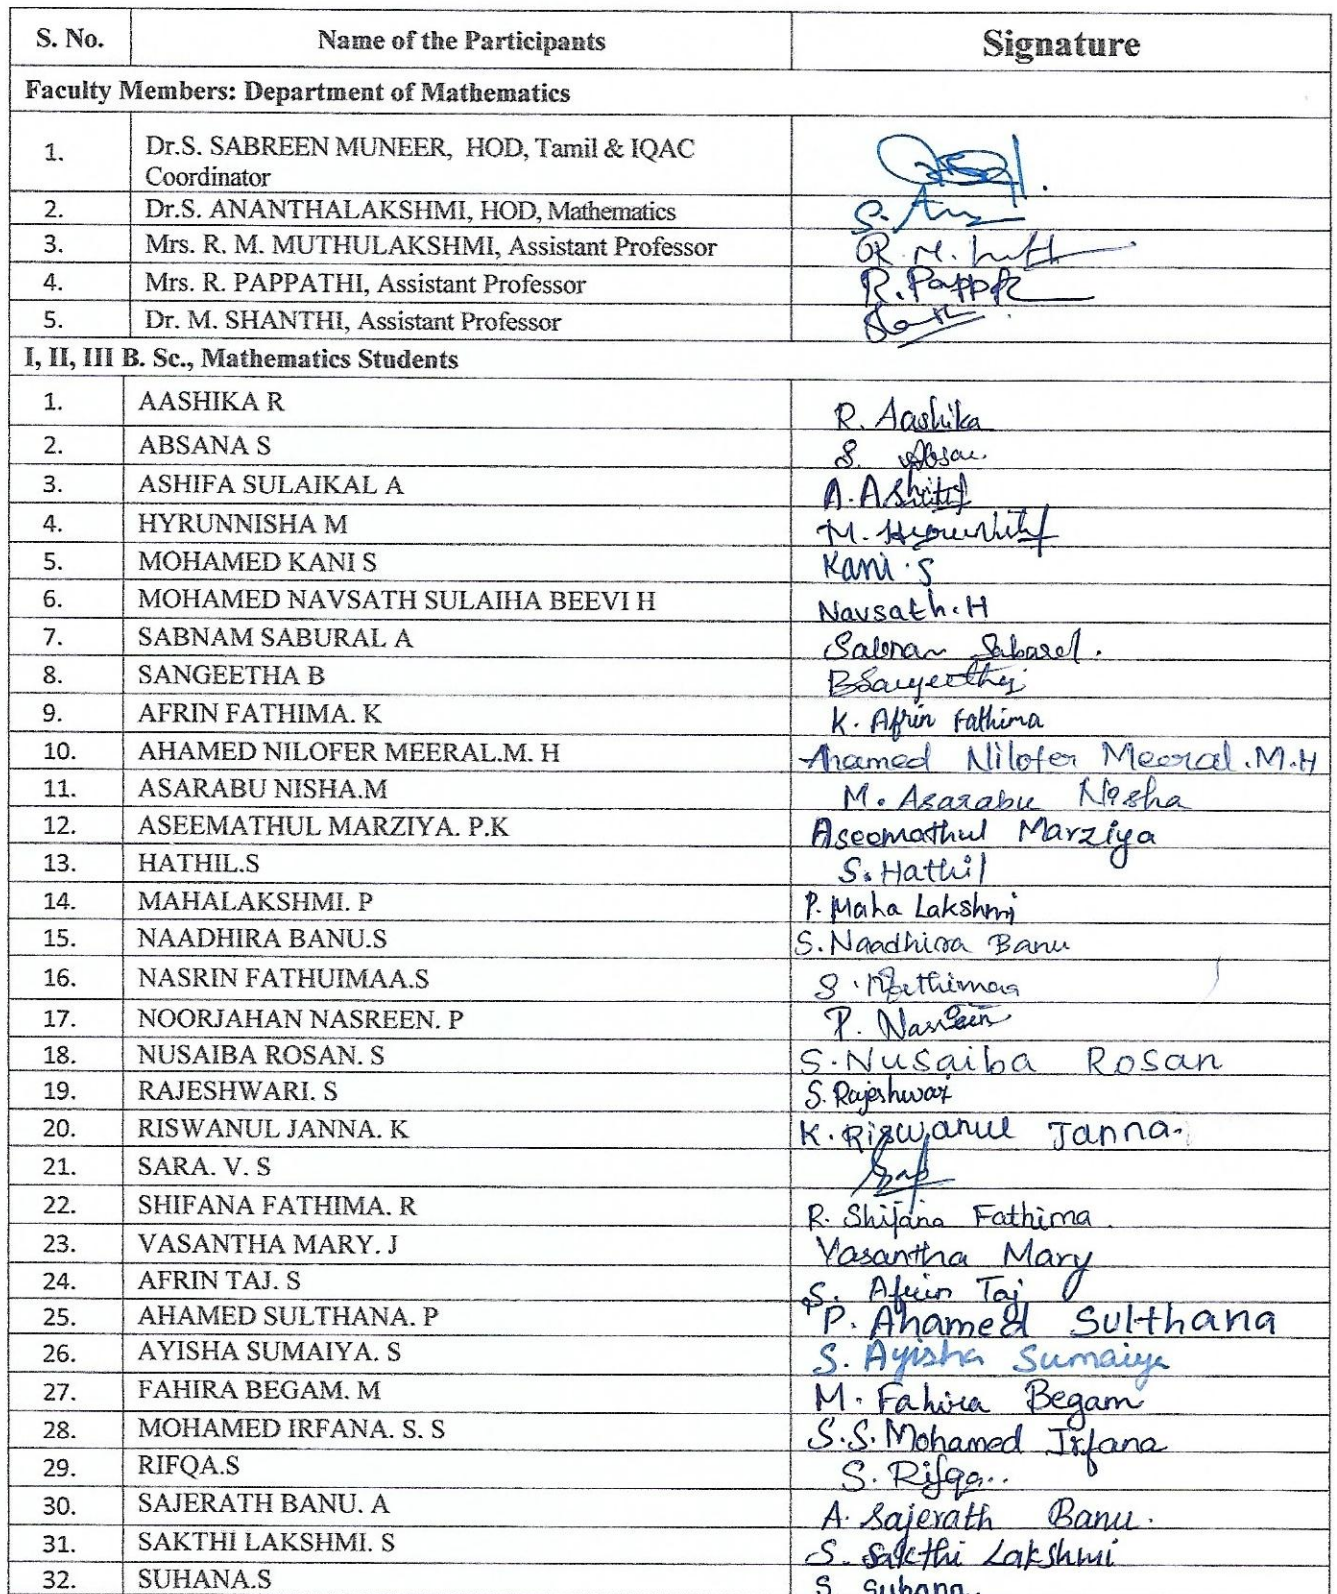 S. No. Name of the Participants Signature
Faculty Members: Department of Mathematics
1. Dr.S. SABREEN MUNEER, HOD, Tamil & IQAC
Coordinator
2. Dr.S. ANANTHALAKSHMI, HOD, Mathematics
3. Mrs. R. M. MUTHULAKSHMI, Assistant Professor
4. Mrs. R. PAPPATHI, Assistant Professor
5. Dr. M. SHANTHI, Assistant Professor
I, II, III B. Sc., Mathematics Students
1. AASHIKA R R. Aashika
2. ABSANA S S.
3. ASHIFA SULAIKAL A A.
4. HYRUNNISHA M M.
5. MOHAMED KANI S Kani.S
6. MOHAMED NAVSATH SULAIHA BEEVI H Navsath.H
7. SABNAM SABURAL A
8. SANGEETHA B
9. AFRIN FATHIMA. K K. Afrin Fathima
10. AHAMED NILOFER MEERAL.M. H Ahamed Nilofer Meeral.M.H
11. ASARABU NISHA.M M. Asarabu Nisha
12. ASEEMATHUL MARZIYA. P.K Aseemathul Marziya
13. HATHIL.S S. Hathil
14. MAHALAKSHMI. P P. Maha Lakshmi
15. NAADHIRA BANU.S S. Naadhira Banu
16. NASRIN FATHUIMAA.S S.
17. NOORJAHAN NASREEN. P P. Nasreen
18. NUSAIBA ROSAN. S S. Nusaiba Rosan
19. RAJESHWARI. S S. Rajeshwari
20. RISWANUL JANNA. K K. Riswanul Janna.
21. SARA. V. S
22. SHIFANA FATHIMA. R R. Shifana Fathima
23. VASANTHA MARY. J Vasantha Mary
24. AFRIN TAJ. S S. Afrin Taj
25. AHAMED SULTHANA. P P. Ahamed Sulthana
26. AYISHA SUMAIYA. S S. Ayisha Sumaiya
27. FAHIRA BEGAM. M M. Fahira Begam
28. MOHAMED IRFANA. S. S S.S. Mohamed Irfana
29. RIFQA.S S. Rifqa..
30. SAJERATH BANU. A A. Sajerath Banu.
31. SAKTHI LAKSHMI. S S. Sakthi Lakshmi
32. SUHANA.S S. Suhana.